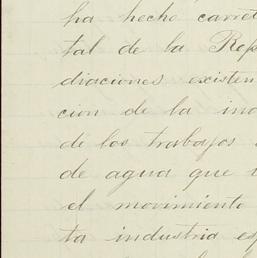 ha hecho carret
tal de la Rep
diaciones existen
cion de la ind
de los trabajos
de agua que
el movimiento
ta industria es